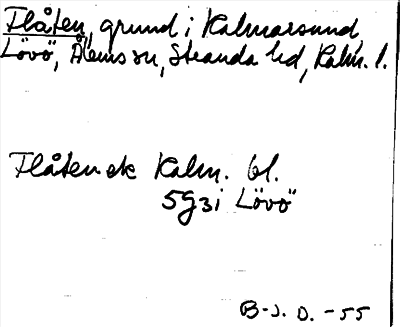 Flåten, grund i Kalmarsund,
Lövö, Ålems sn, Stranda hd, Kalm. l.
Flåten ek Kalm. bl.
5g3i Lövö
B-J. D. -55